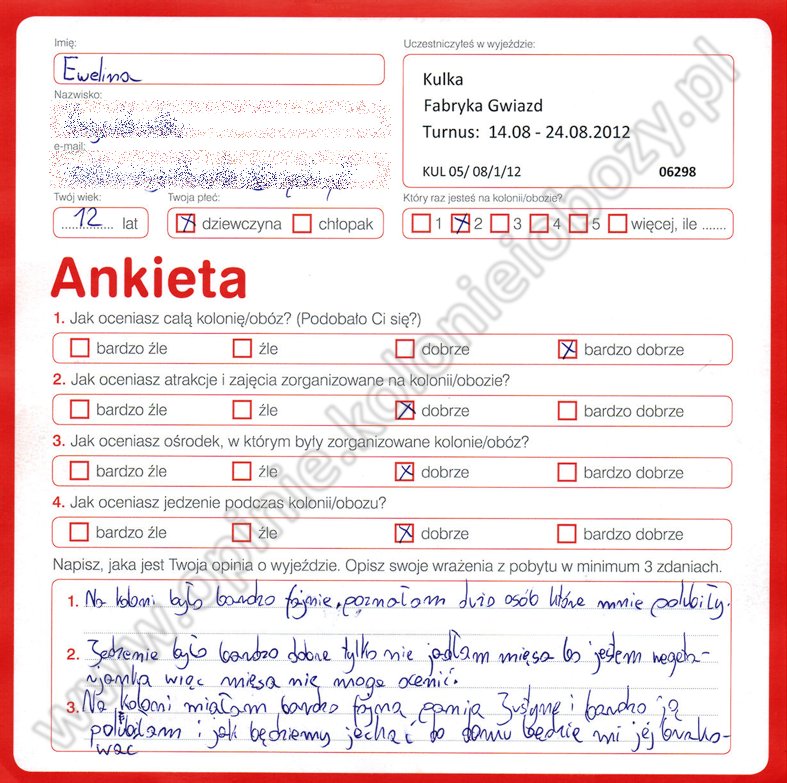 Imię:
Ewelina
Nazwisko:
e-mail:
Twój wiek:
12 lat
Twoja płeć:
dziewczyna chłopak
Uczestniczyłeś w wyjeździe:
Kulka
Fabryka Gwiazd
Turnus: 14.08 - 24.08.2012
KUL 05/ 08/1/12 06298
Który raz jesteś na kolonii/obozie?
1 2 3 4 5 więcej, ile .......
Ankieta
1. Jak oceniasz całą kolonię/obóz? (Podobało Ci się?)
bardzo źle źle dobrze bardzo dobrze
2. Jak oceniasz atrakcje i zajęcia zorganizowane na kolonii/obozie?
bardzo źle źle dobrze bardzo dobrze
3. Jak oceniasz ośrodek, w którym były zorganizowane kolonie/obóz?
bardzo źle źle dobrze bardzo dobrze
4. Jak oceniasz jedzenie podczas kolonii/obozu?
bardzo źle źle dobrze bardzo dobrze
Napisz, jaka jest Twoja opinia o wyjeździe. Opisz swoje wrażenia z pobytu w minimum 3 zdaniach.
1. Na koloni było bardzo fajnie, poznałam dużo osób które mnie polubiły.
2. Jedzenie było bardzo dobre tylko nie jadłam mięsa bo jestem wegeta-
rjanką więc mięsa nie mogę ocenić.
3. Na koloni miałam bardzo fajną panią Justynę i bardzo ją
polubiłam i jak będziemy jechać do domu będzie mi jej brako-
wać
www.opinie.kolonieiobozy.pl